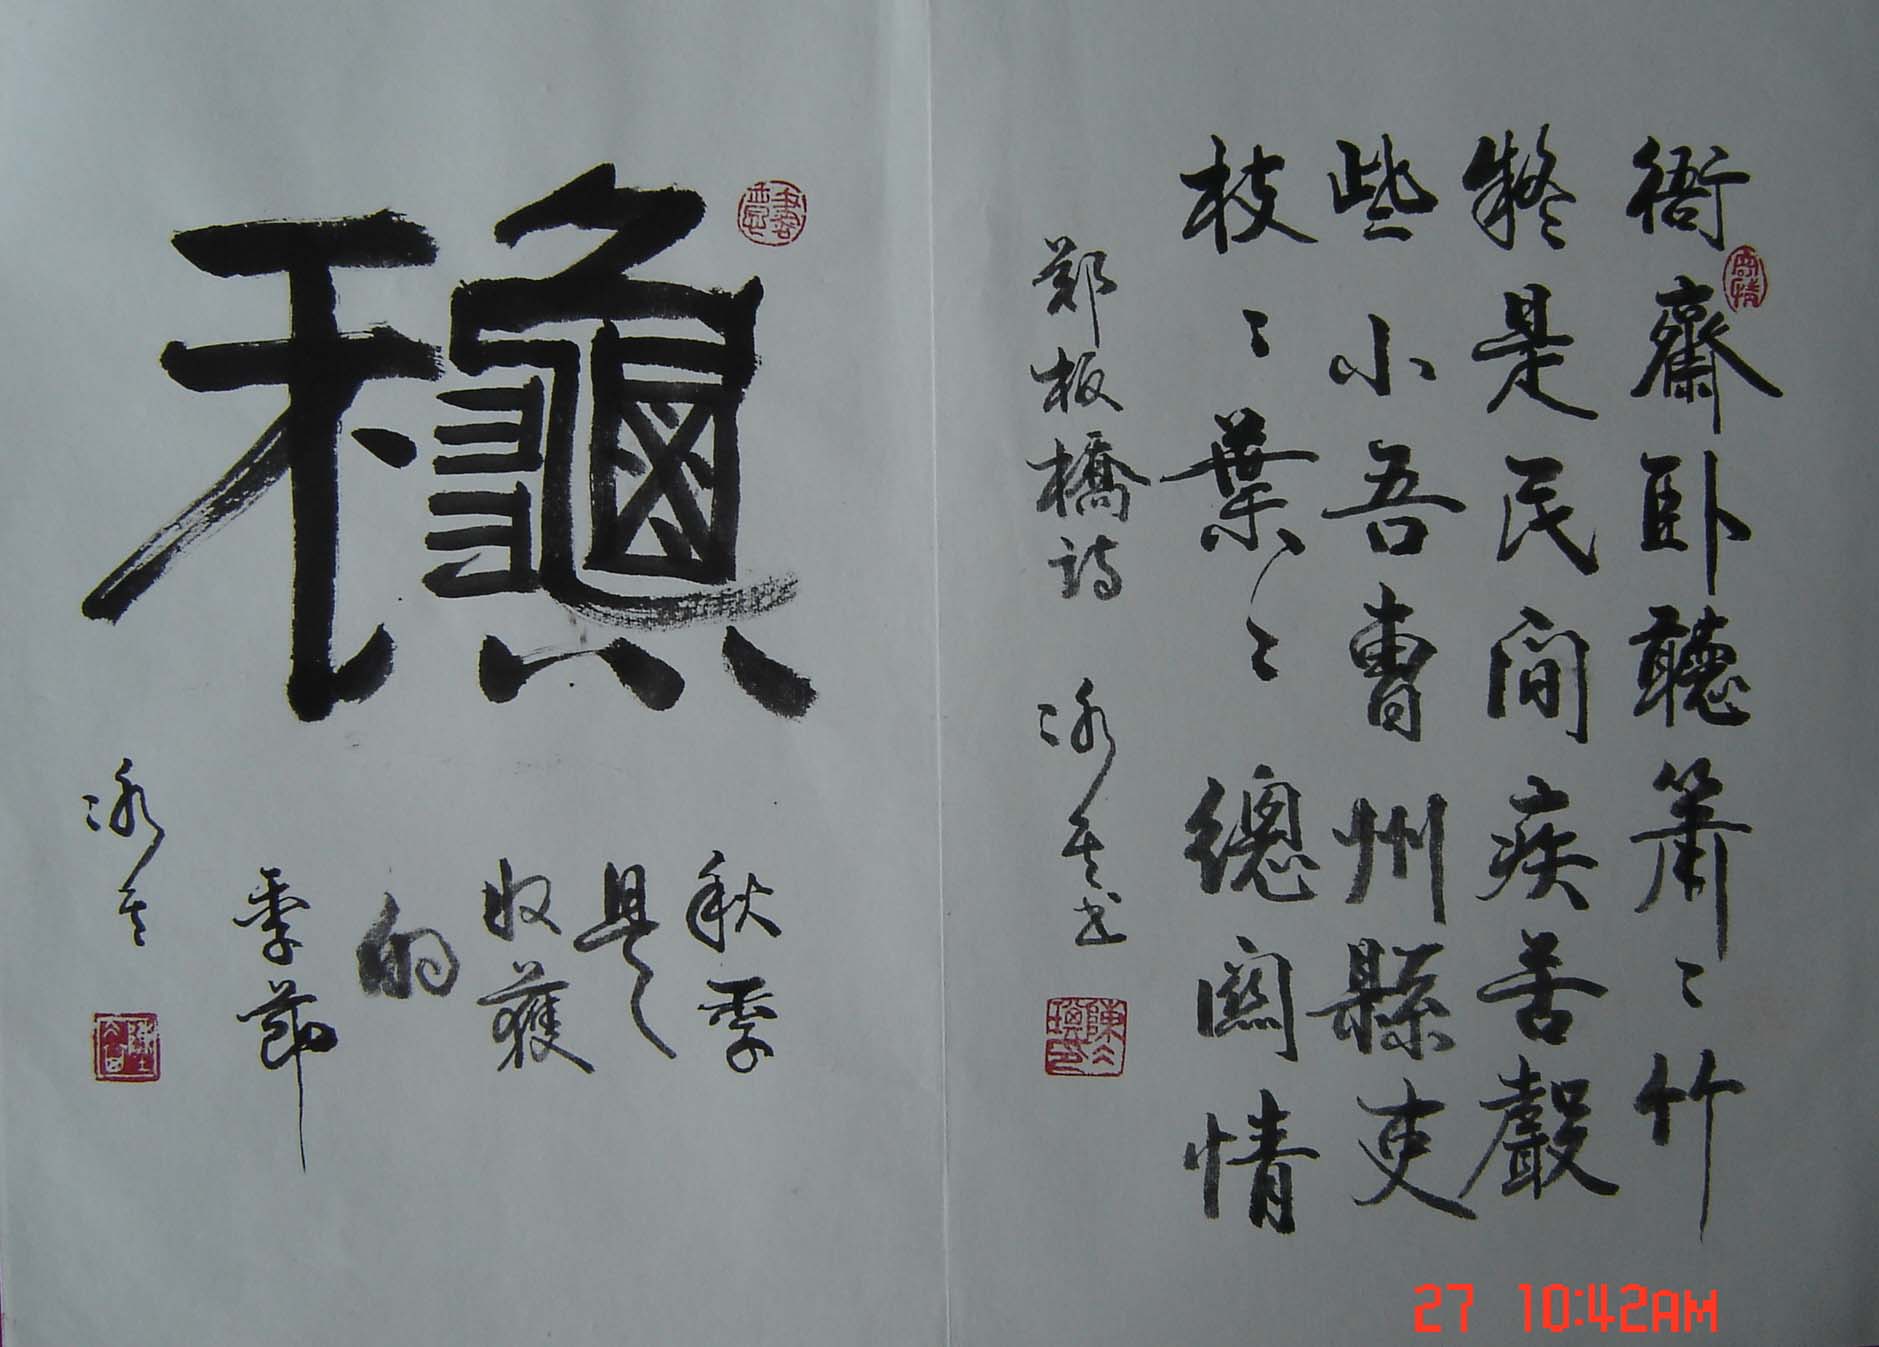 衙齋卧聽簫〻竹
疑是民間疾苦聲
些小吾曹州縣吏
枝〻葉〻總關情
鄭板橋詩
书
龝
秋季
是
收獲
的
季節
27 10:42AM